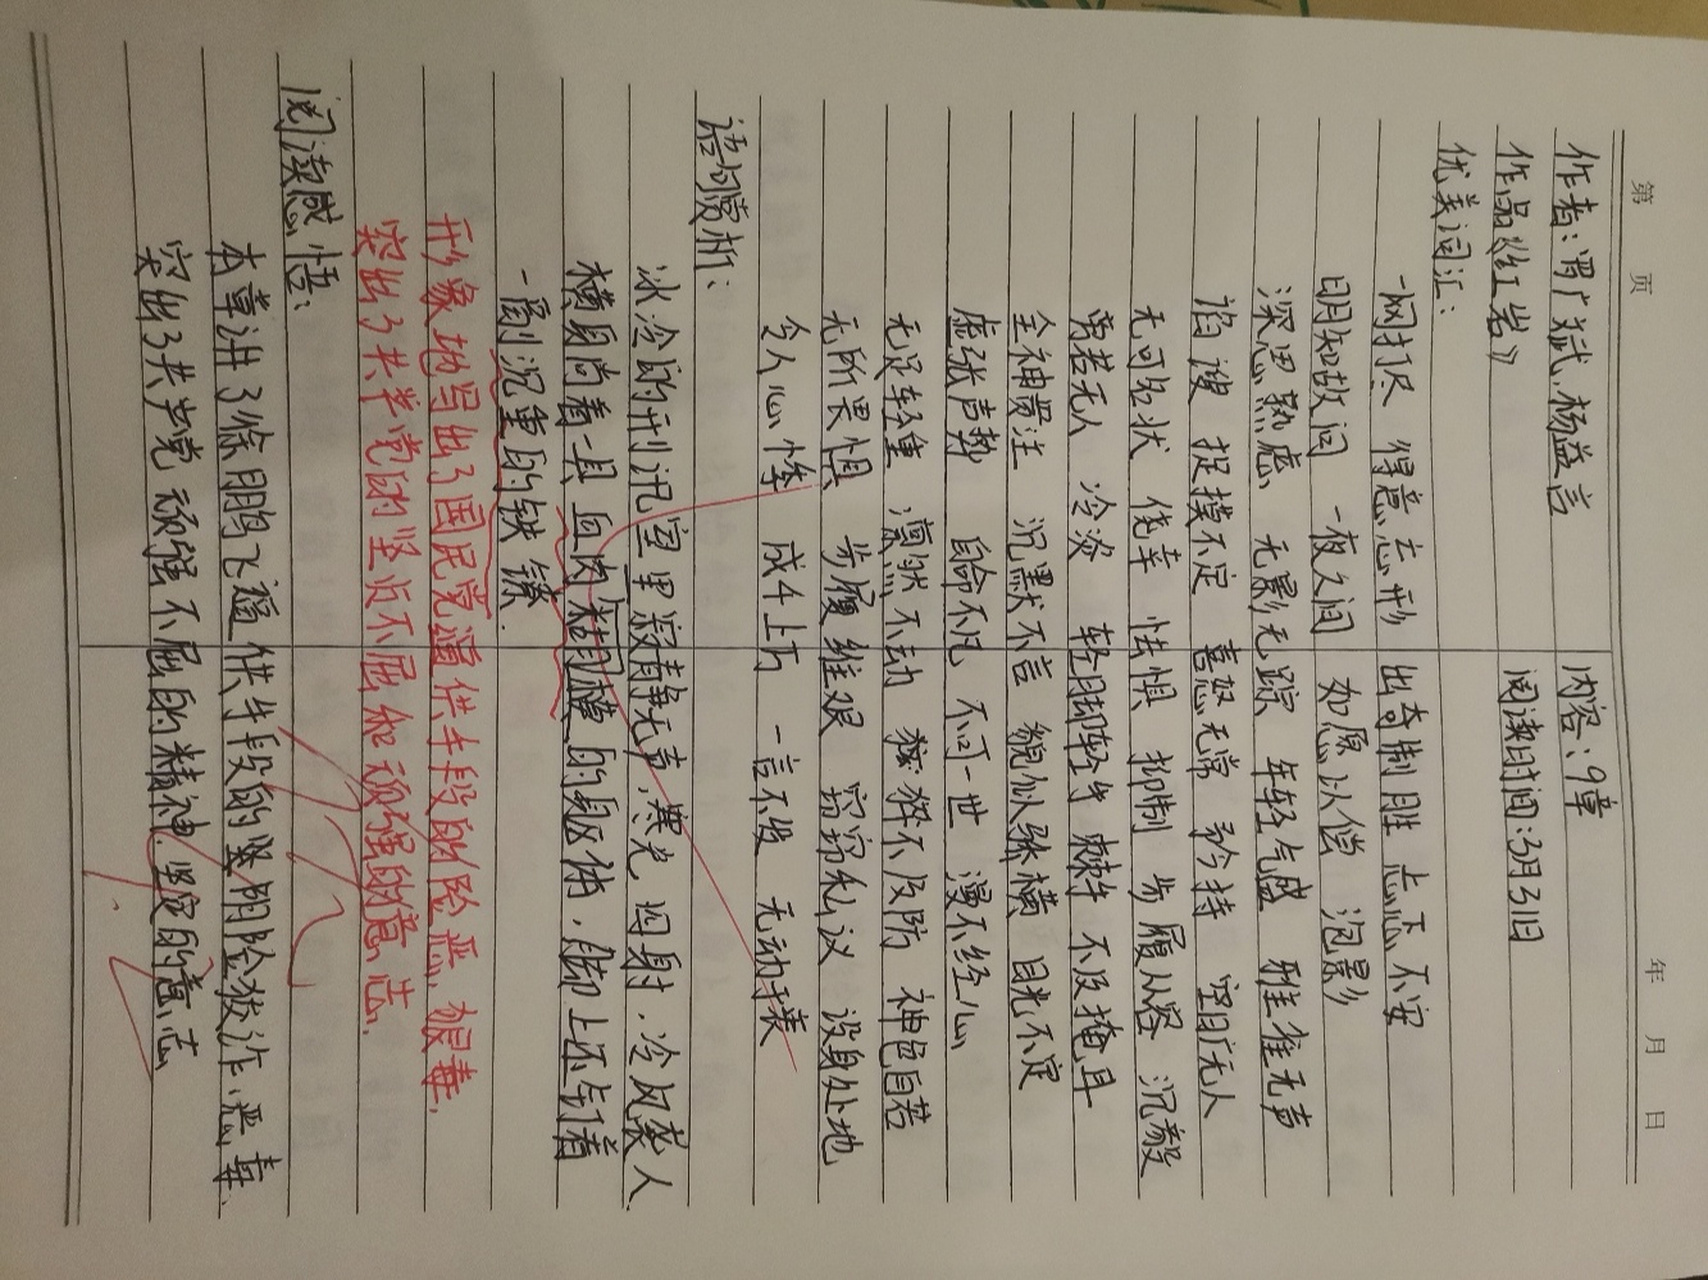 第 页 年 月 日
作者：罗广斌、杨益言 内容：9章
作品《红岩》 阅读时间：3月31日
优美词汇：
一网打尽 得意忘形 出奇制胜 忐忑不安
明知故问 一夜之间 如愿以偿 泡影
深思熟虑 无影无踪 年轻气盛 鸦雀无声
谄谀 捉摸不定 喜怒无常 矜持 空旷无人
无可名状 侥幸 怯惧 抑制 步履从容 沉毅
旁若无人 冷淡 轻脚轻手 棘手 不及掩耳
全神贯注 沉默不言 貌似骄横 目光不定
虚张声势 自命不凡 不可一世 漫不经心
无足轻重 凛然不动 猝不及防 神色自若
无所畏惧 步履维艰 窃窃私议 设身处地
令人心悸 成千上万 一言不发 无动于衷
语句赏析：
冰冷的刑讯室里寂静无声，寒光四射，冷风袭人
横身倘着一具血肉模糊的躯体，脚上还钉着
一副沉重的铁镣．
形象地写出了国民党逼供手段的险恶，狠毒，
突出了共产党的坚贞不屈和顽强的意志．
阅读感悟：
本章讲了徐鹏飞逼供手段的阴险狡诈、恶毒、
突出了共产党顽强不屈的精神．坚定的意志